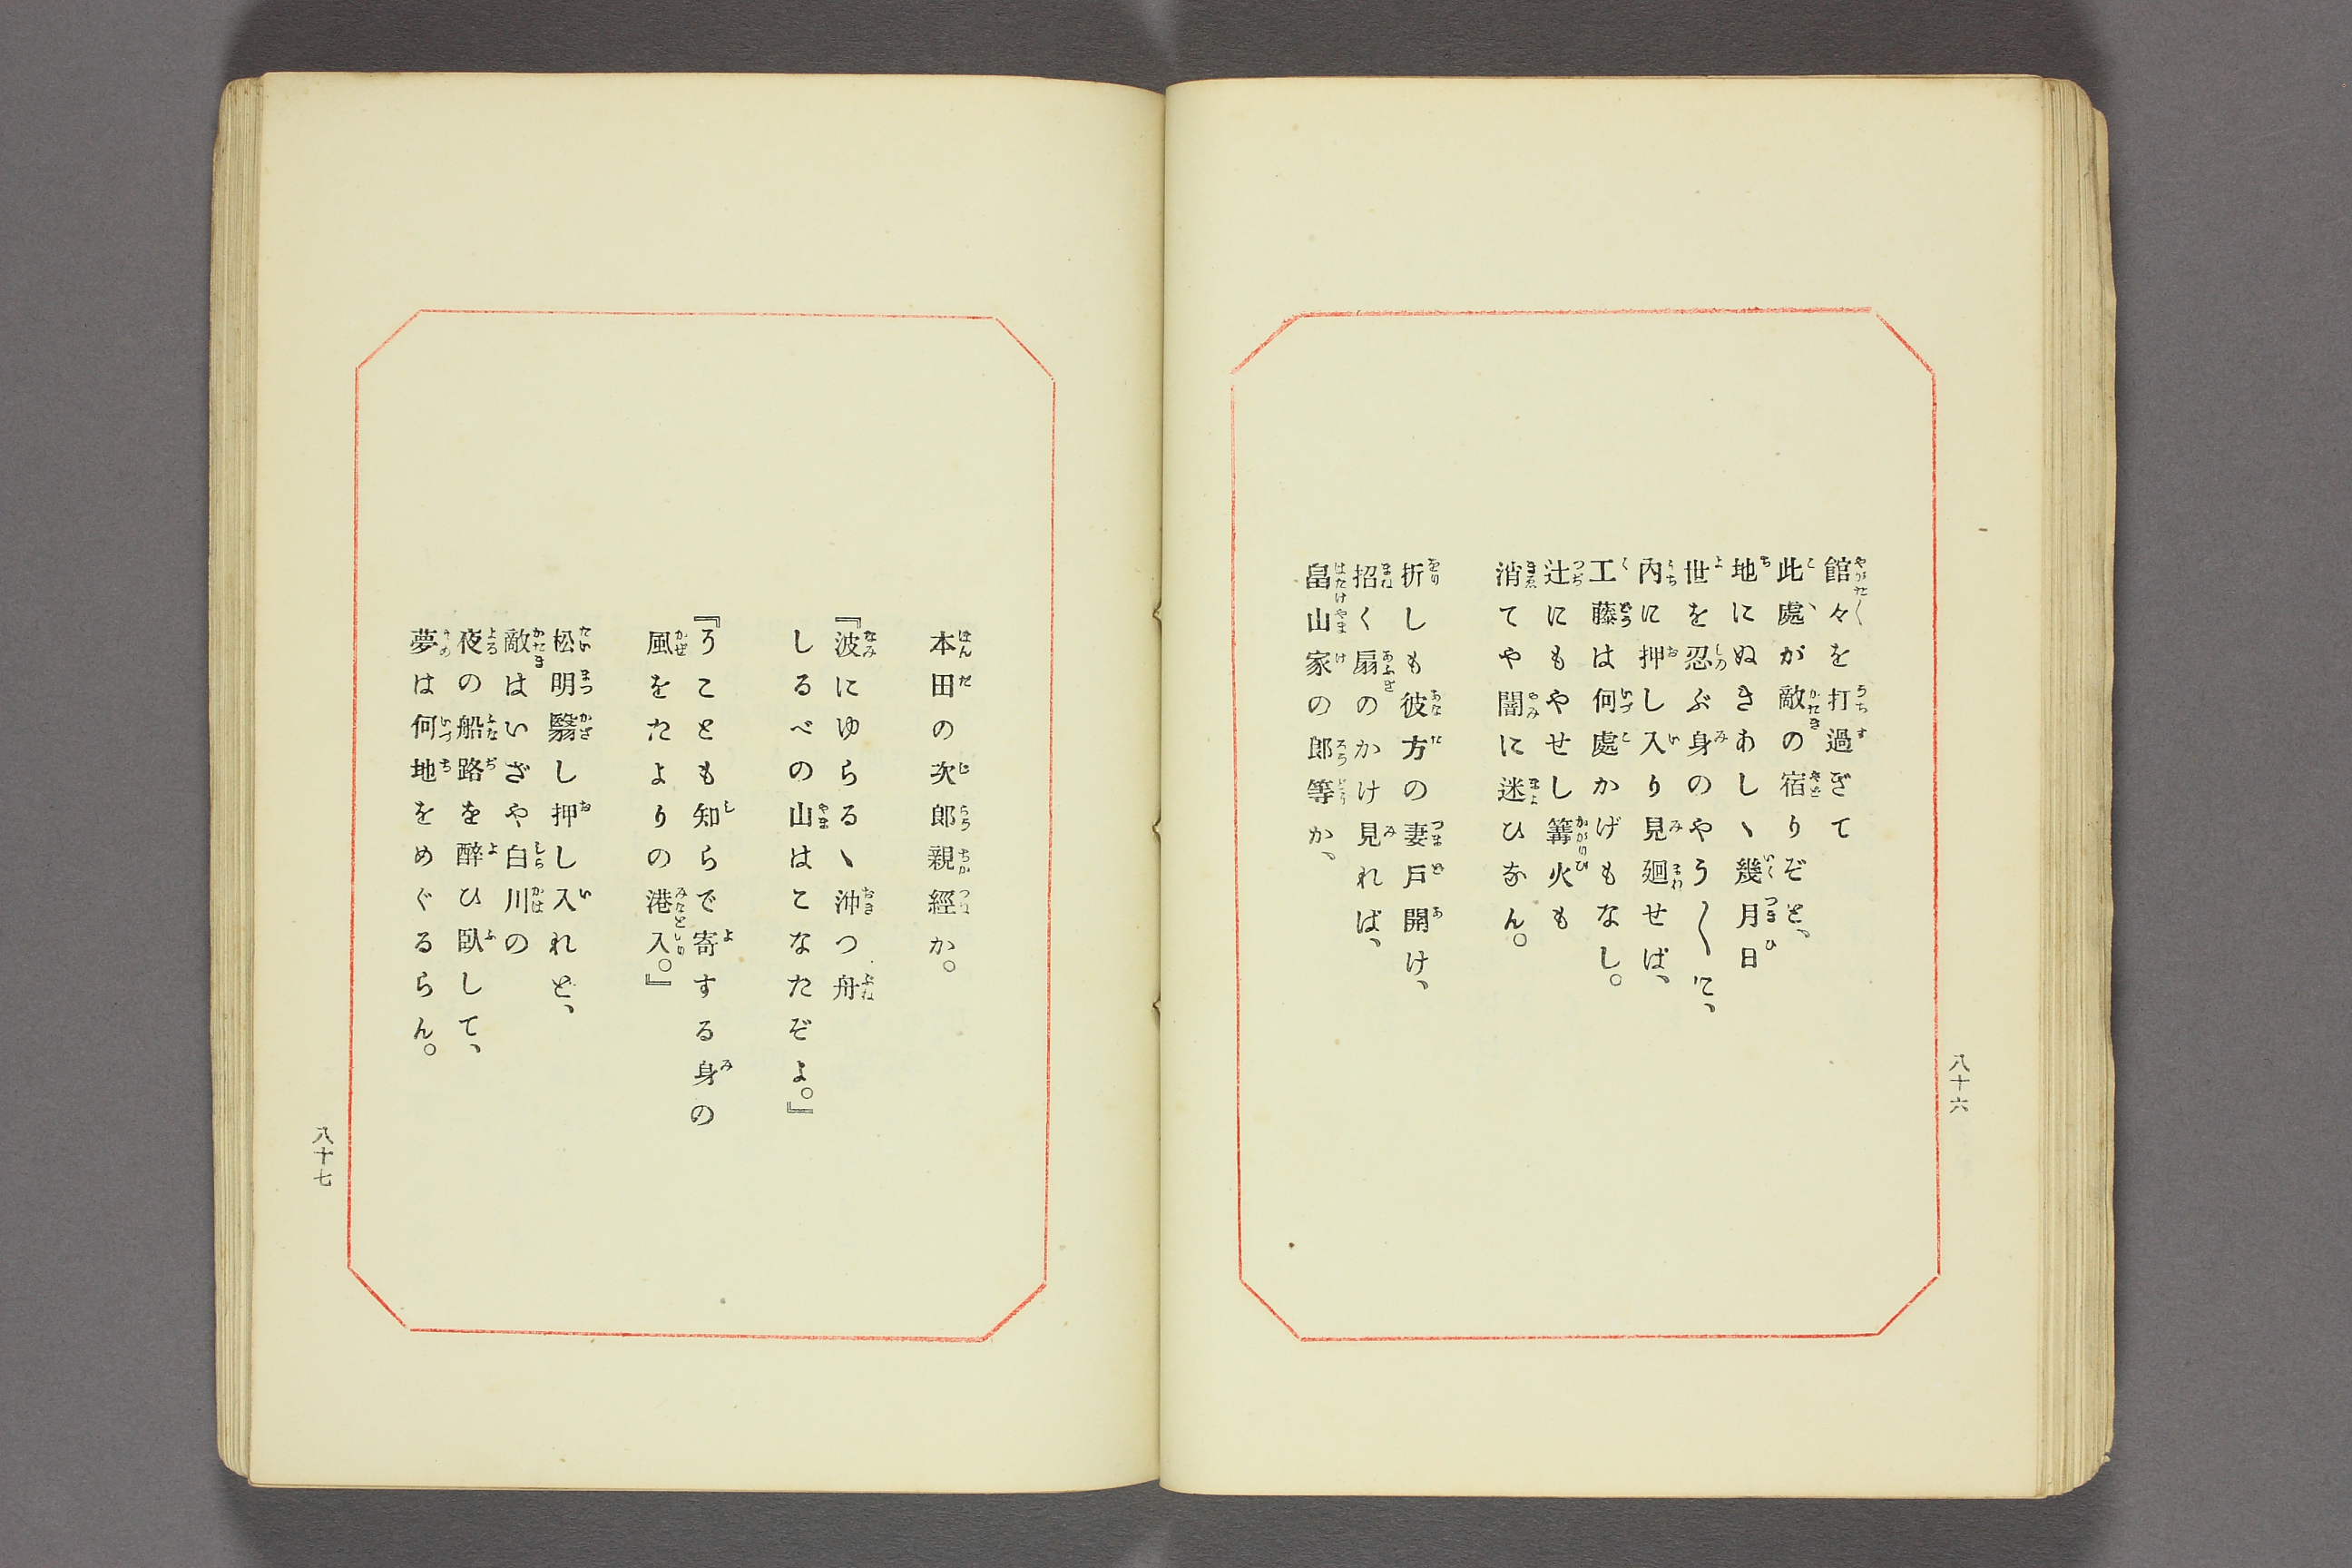 館々を打過ぎて
此處が敵の宿りぞと、
地にぬきあしゝ幾月日
世を忍ぶ身のやう〳〵に、
内に押し入り見廻せば、
工藤は何處かげもなし。
辻にもやせし篝火も
消てや闇に迷ひなん。
折しも彼方の妻戸開け、
招く扇のかけ見れば、
畠山家の郎等か、
八十六
本田の次郎親經か。
『波にゆらるゝ沖つ舟
しるべの山はこなたぞよ。』
『うことも知らで寄する身の
風をたよりの港入。』
松明翳し押し入れど、
敵はいざや白川の
夜の船路を醉ひ臥して、
夢は何地をめぐるらん。
八十七